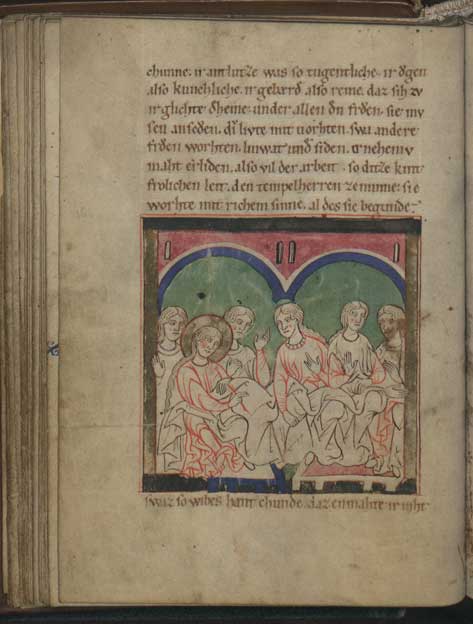 chunne. ir antlutze was so tugentliche. ir ǒgen
also kunchliche. ir gebærd also reine. daz sih zv
ir glichte dheine. under allen dn frǒen. sie mv
sen anseden. livte mit vorhten. swa andere
frǒen worhten. linwat und siden.
maht erliden. also vil der arbeit. so ditze kint
frolichen leit. den tempelherren ze minne. sie
worhte mit richem sinne. al des sie begunde.
swaz so wibes hant chunde. daz enmahte ir niht